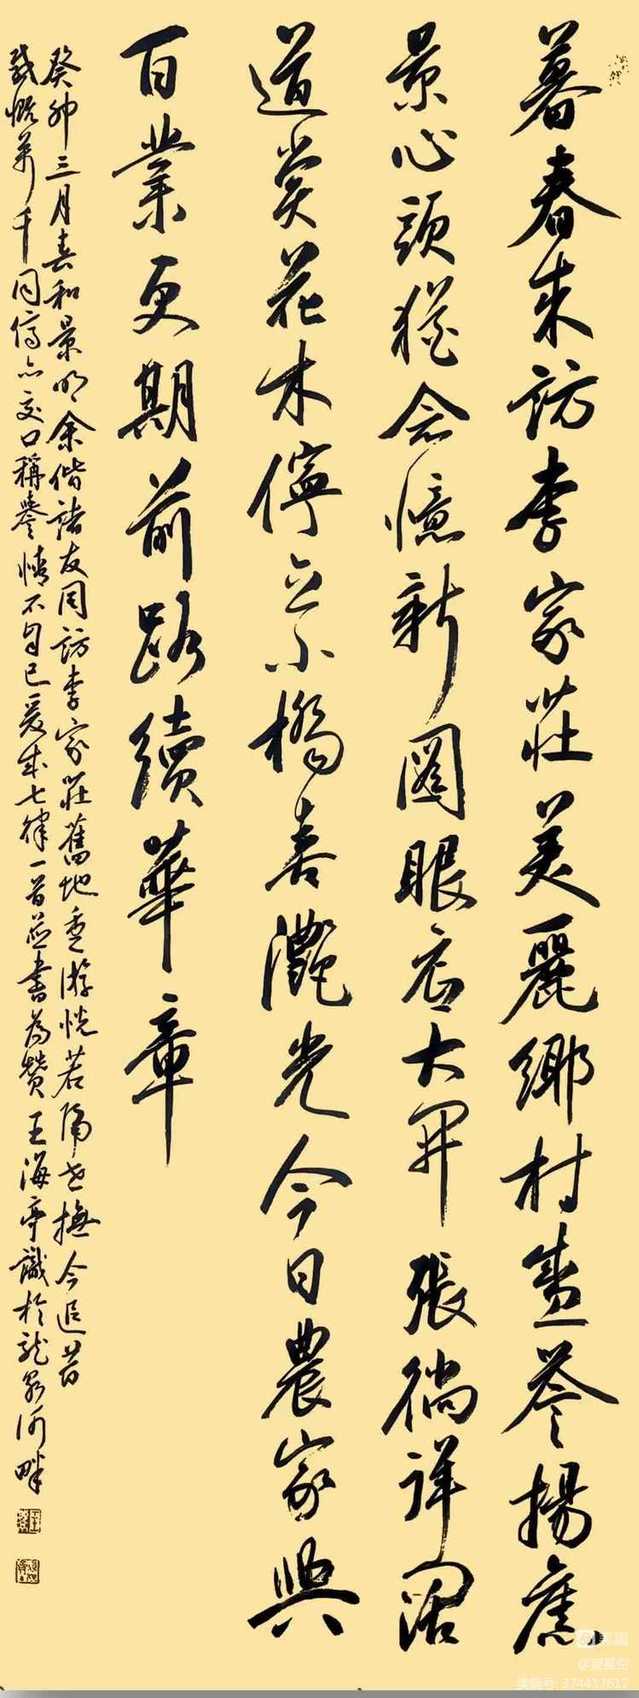 暮春来訪李家莊美麗鄉村盛譽揚舊
景心頭猶念憶新圖眼底大開張徜徉闊
道賞花木佇立小橋喜灔光今日農家興
百業更期前路續華章
癸卯三月春和景明余偕諸友同訪李家莊舊地重游恍若隔世撫今追昔
感慨萬千同儕亦交口稱譽情不自已爰成七律一首並書為贊王海亭識於龍泉河畔
美篇
374417617